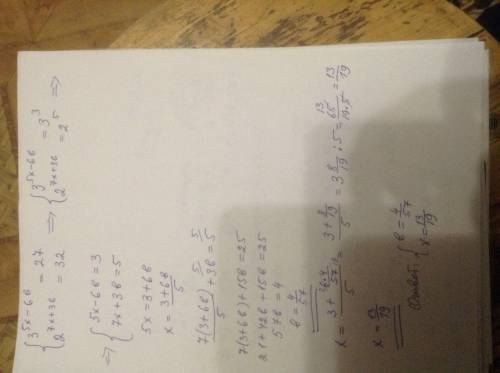 {3^(5x-6в) = 27, 2^(7x+3в) = 32 => {3^(5x-6в) = 3^3, 2^(7x+3в) = 2^5 =>
=> {5x-6в=3, 7x+3в=5
5x=3+6в
x = (3+6в)/5
7(3+6в)/5 + 3в = 5
7(3+6в)+15в=25
21+42в+15в=25
57в=4
в=4/57
x = (3 + 6·4/57)/5 = (3+8/19)/5 = 3 8/19 : 5 = 65/(19·5) = 13/19
x = 13/19
Ответ: {в=4/57, x=13/19